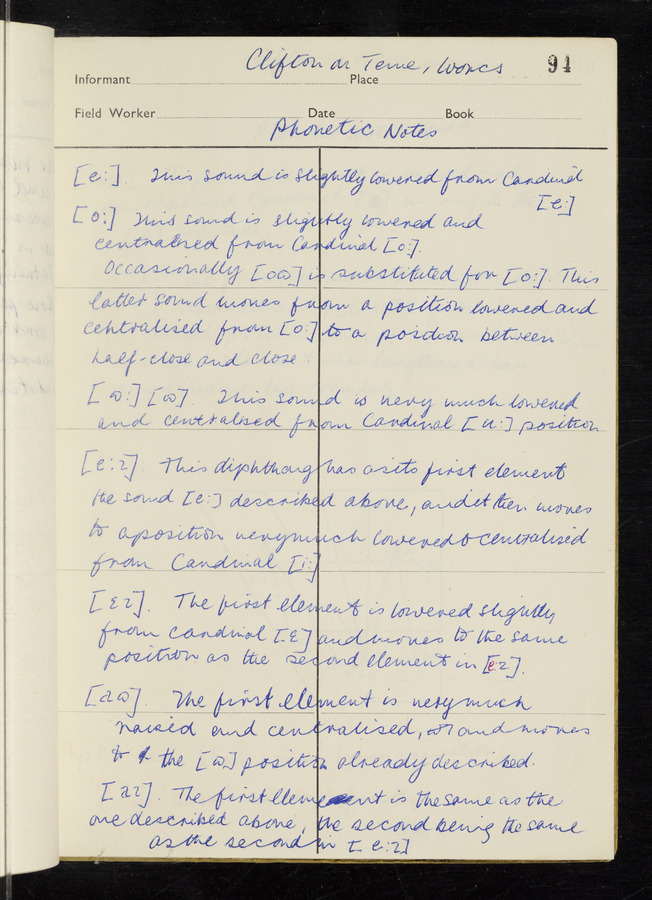 Clifton on Teme, Worcs 91
Informant Place
Field Worker Date Book
Phonetic Notes
[e:]. This sound is slightly lowered from Cardinal
[e:]
[o:] This sound is slightly lowered and
centralised from Cardinal [o:].
Occasionally [oɷ] is substituted for [o:]. This
latter sound moves from a position lowered and
centralised from [o:] to a position between
half-close and close
[ɷ:] [ɷ]. This sound is very much lowered
and centralised from Cardinal [u:] position
[e:ɪ]. This diphthong has as its first element
the sound [e:] described above, and it then moves
to a position very much lowered & centralised
from Cardinal [i:]
[ɛɪ]. The first element is lowered slightly
from cardinal [ɛ] and moves to the same
position as the second element in [eɪ].
[aɷ]. The first element is very much
raised and centralised, and moves
to the [ɷ] position already described.
[aɪ]. The first element is the same as the
one described above, the second being the same
as the second in [e:ɪ]